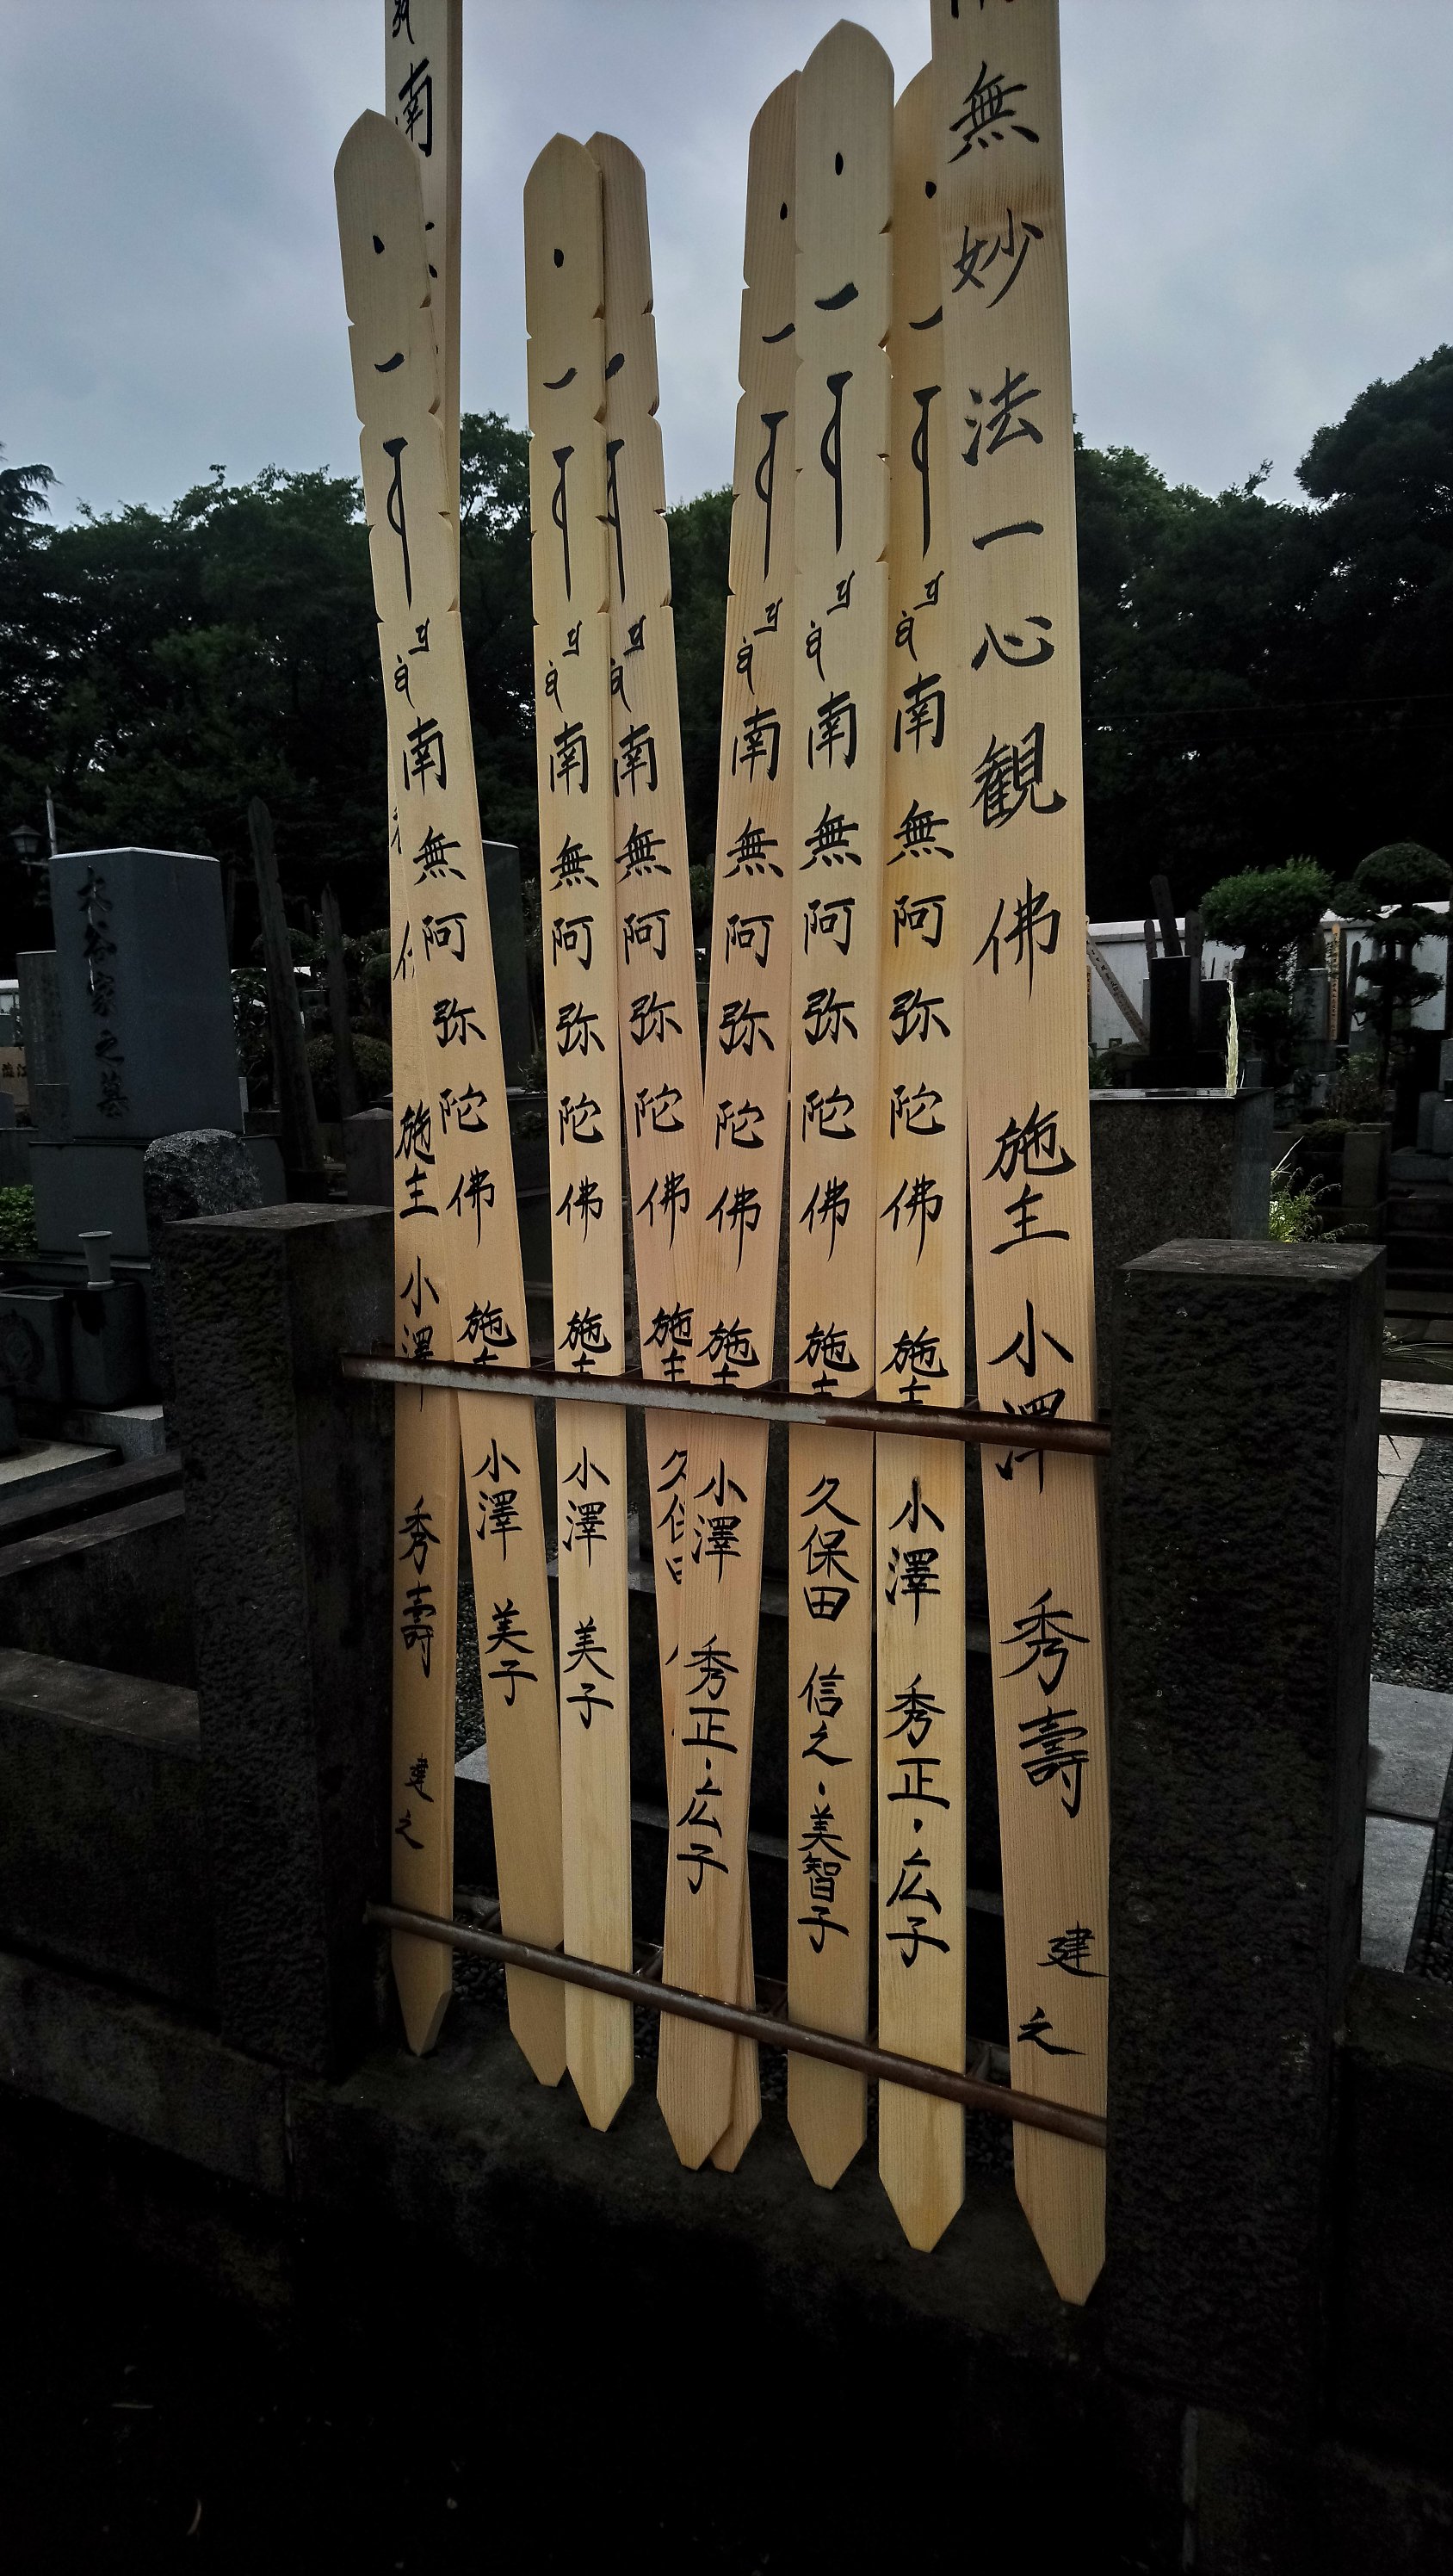 無妙法一心観佛 施主 小澤 秀壽 建之
南無阿弥陀佛 施主 小澤 秀正・広子
南無阿弥陀佛 施主 久保田 信之・美智子
南無阿弥陀佛 施主 小澤 秀正・広子
南無阿弥陀佛 施主 久保田
南無阿弥陀佛 施主 小澤 美子
南無阿弥陀佛 施主 小澤 美子
南 施主 小澤 秀壽 建之
木谷家之墓